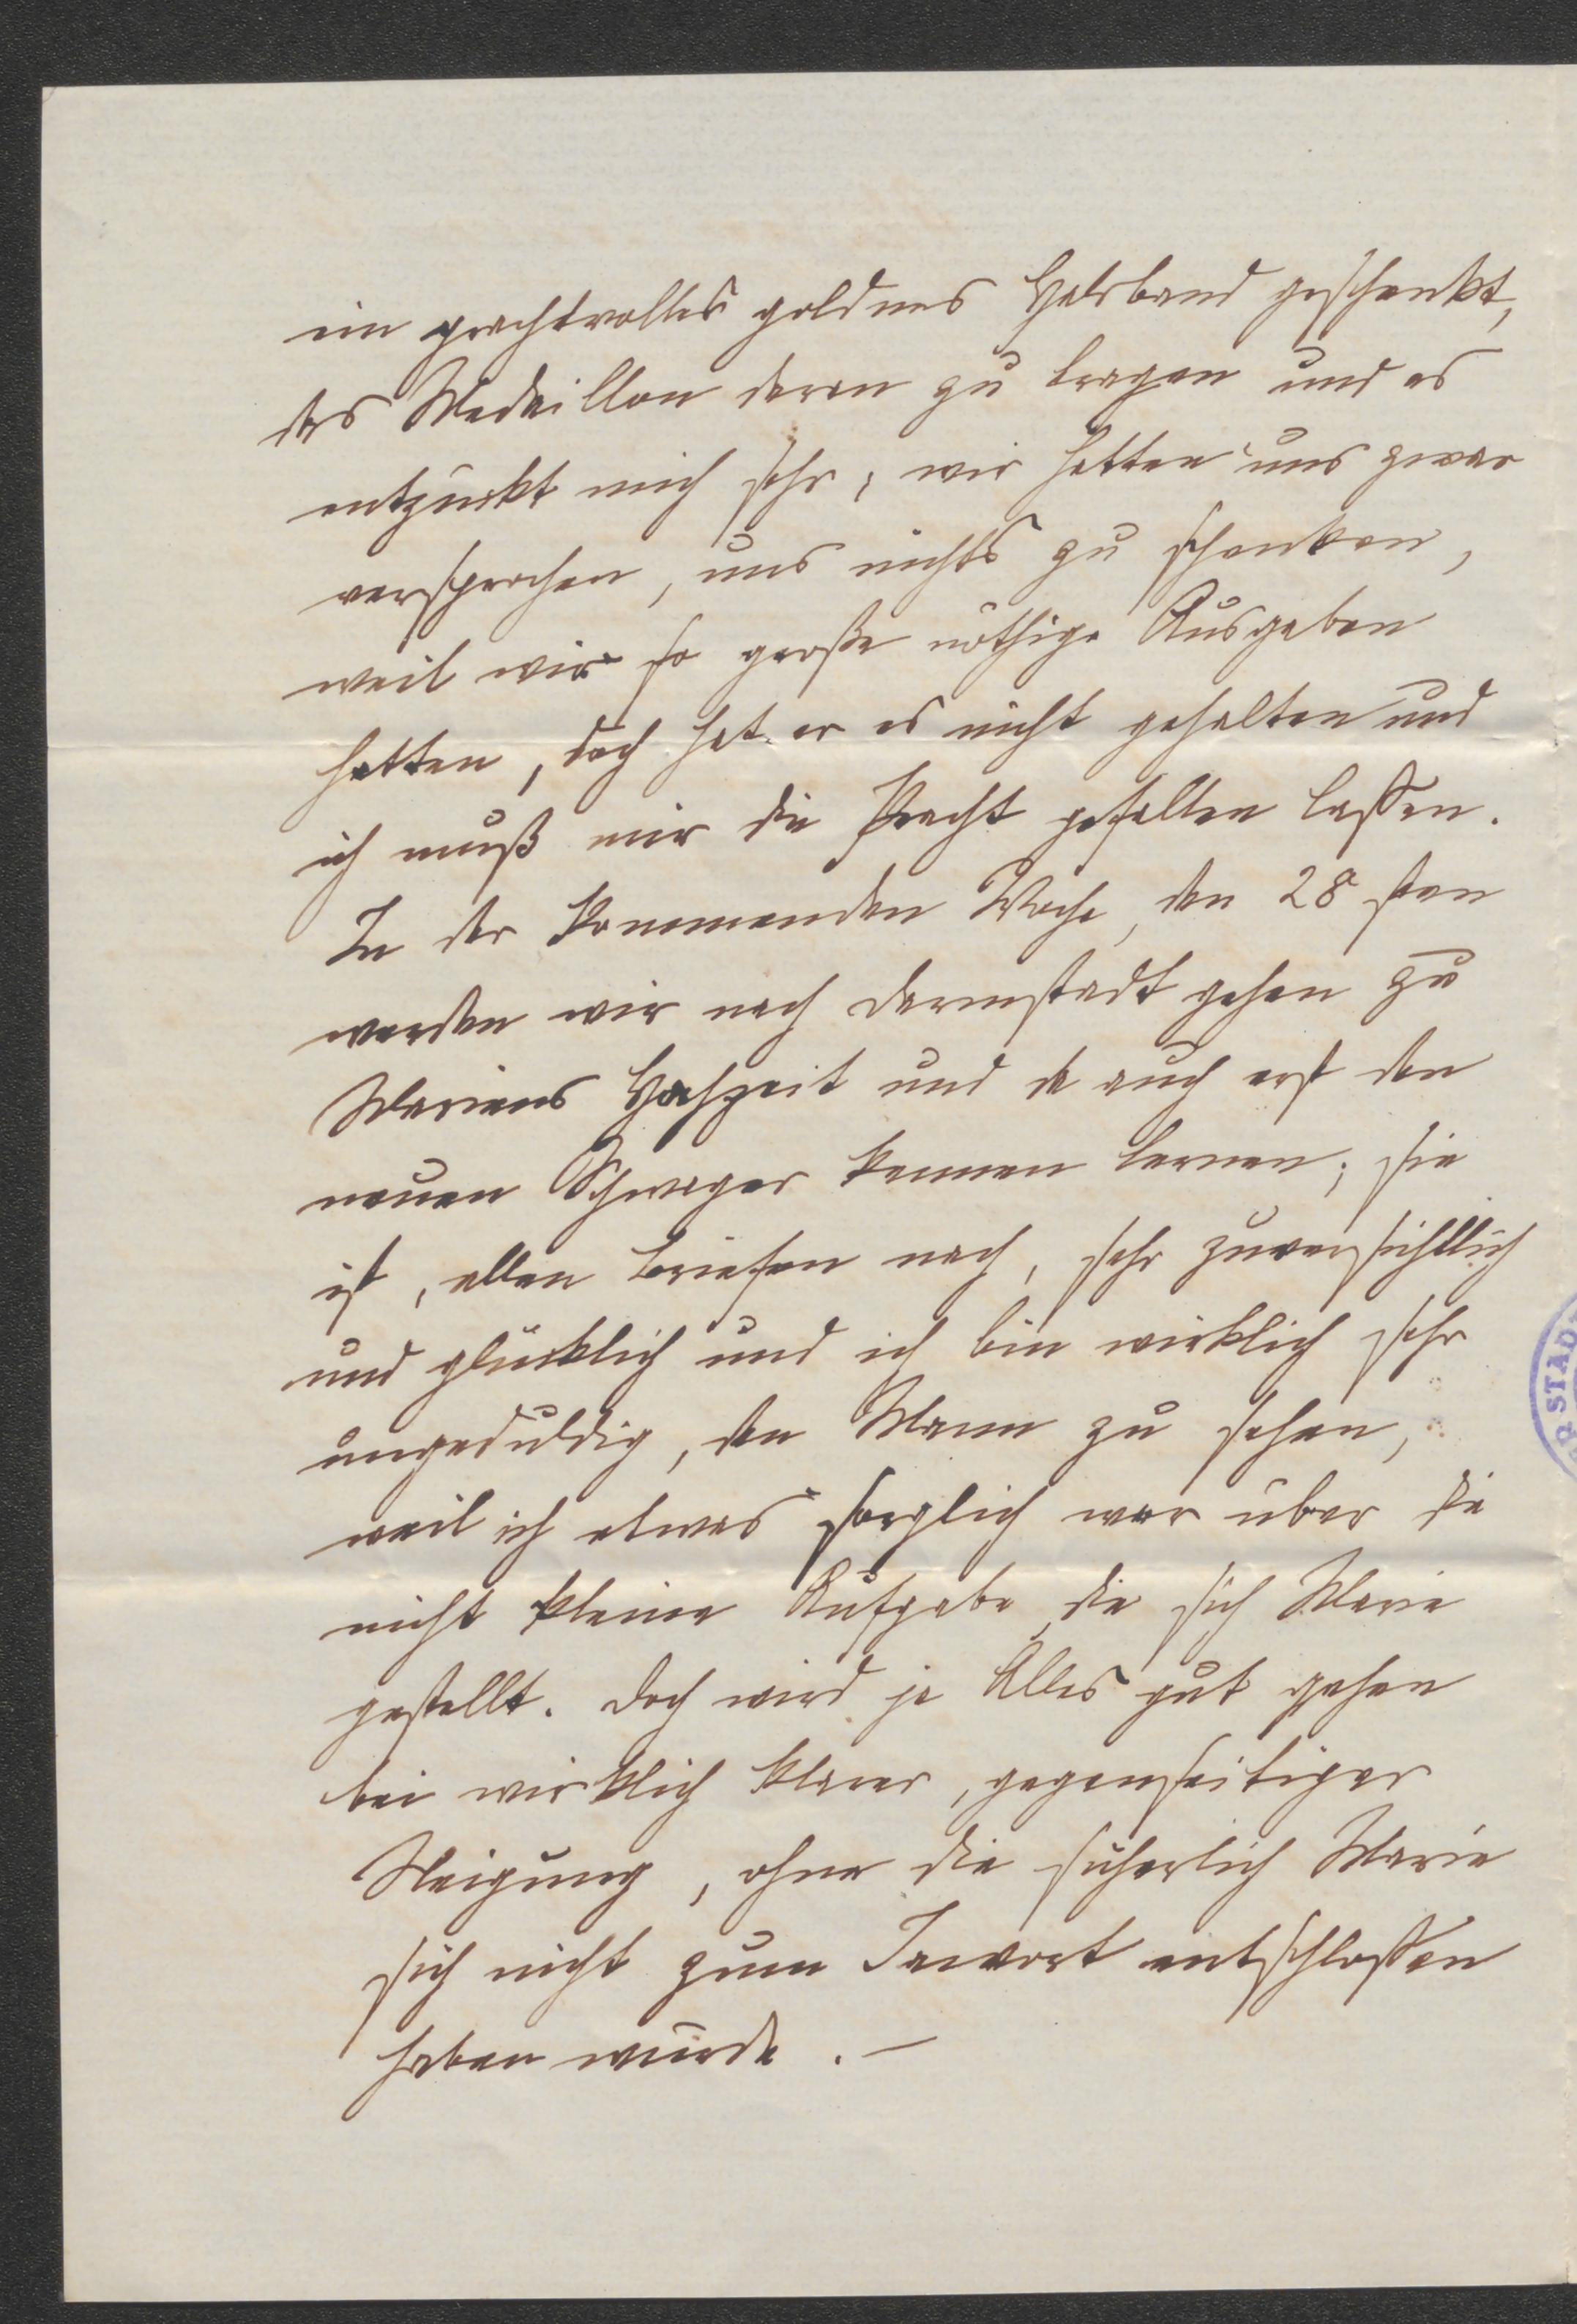 ein prachtvolles goldnes Halsband geschenkt,
das Medaillon daran zu tragen und es
entzückt mich sehr; wir hatten uns zwar
versprochen, uns nichts zu schenken,
weil wir so große nöthige Ausgaben
hatten, doch hat er es nicht gehalten und
ich muß mir die Pracht gefallen lassen.
In der kommenden Woche, den 28 sten
werden wir nach Darmstadt gehen zu
Mariens Hochzeit und da auch erst den
neuen Schwager kennen lernen; sie
ist, allen Briefen nach, sehr zuversichtlich
und glücklich und ich bin wirklich sehr
ungeduldig, den Mann zu sehen,
weil ich etwas sorglich war über die
nicht kleine Aufgabe, die sich Marie
gestellt. Doch wird ja Alles gut gehen
bei wirklich klarer, gegenseitiger
Neigung, ohne die sicherlich Marie
sich nicht zum Jawort entschlossen
haben würde. —
STAD